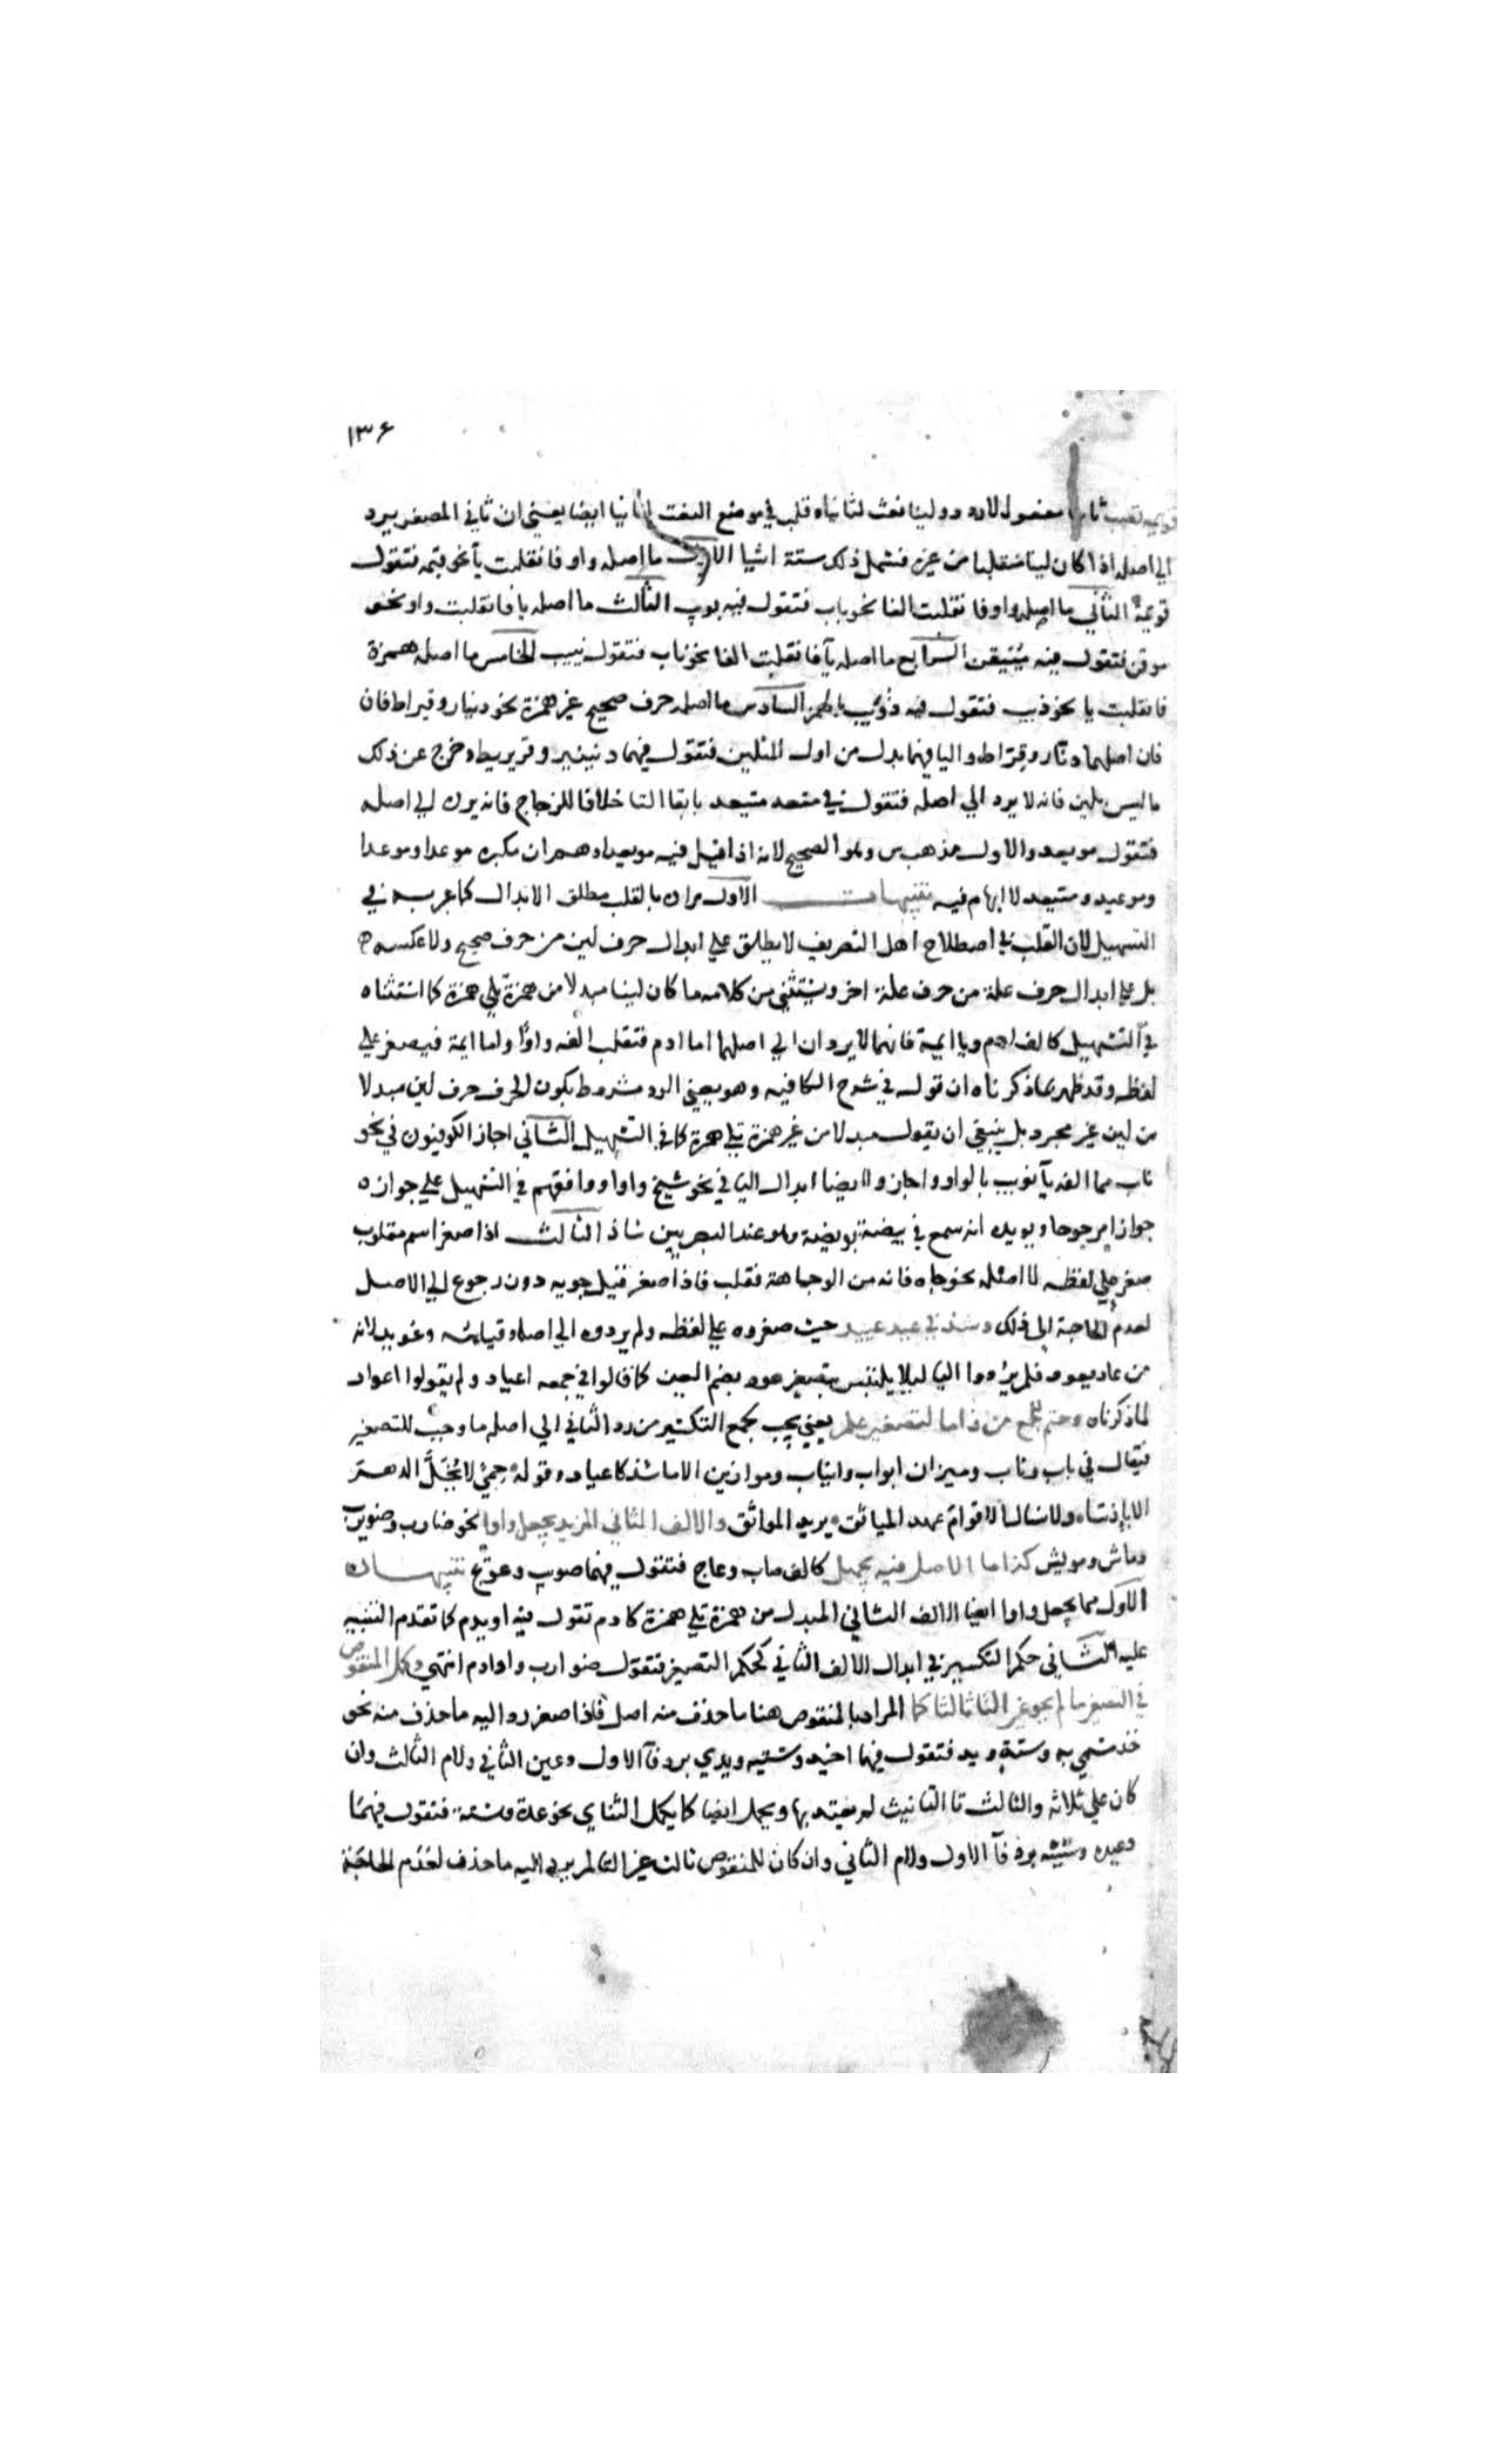 ١٣٤
قويمة تصب ثانيا مفعول لاردد ولينا نعت لثانيا وقلب في موضع النعت لثانيا ايضا يعني ان ثاني المصغر يرد
الي اصله اذا كان لينا منقلبا من غيره فشمل ذلك ستة اشيا الاول ما اصله واو فانقلبت يآ نحو قيمة فتقول
قويمة الثاني ما اصله واو فانقلبت الفا نحو باب فتقول فيه بويب الثالث ما اصله يا فانقلبت واو نحو
موقن فتقول فيه مييقن الرابع ما اصله يآ فانقلبت الفا نحو ناب فتقول نييب الخامس ما اصله همزة
فانقلبت يا نحو ذيب فتقول فيه ذؤيب بالهمز السادس ما اصله حرف صحيح غير همزة نحو دنيار وقيراط فان
فان اصلهما دنار وقراط واليا فيهما بدل من اول المثلين فتقول فيهما دنينير وقريريط وخرج عن ذلك
ما ليس بلين فانه لا يرد الي اصله فتقول في متعد متيعد بابقا التا خلافا للزجاج فانه يرده الي اصله
فتقول مويعد والاول مذهب س وهو الصحيح لانه اذا قيل فيه مويعد اوهم ان مكبره موعد او موعدا
وموعيد ومتيعد لا ابهام فيه تنبيهات الاول مراده بالقلب مطلق الابدال كما عربه في
التسهيل لان القلب في اصطلاح اهل التصريف لا يطلق علي ابدال حرف لين من حرف صحيح ولا عكسه
بل علي ابدال حرف علة من حرف علة اخر ويستثني من كلامه ما كان لينا مبدلا من همزة تلي همزة كما استثناه
في التسهيل كالف ادم ويا ايمة فانهما لا يردان الي اصلهما اما ادم فتقلب الفه واوا واما ايمة فيصغر علي
لفظه وقد ظهر بما ذكرناه ان قوله في شرح الكافيه وهو يعني الرد مشروط بكون الحرف حرف لين مبدلا
من لين غير محرر بل ينبغي ان يقول مبدلا من غير همزة تلي همزة كما في التسهيل الثاني اجاز الكوفيون في نحو
ناب مما الفه يآ نويب بالواو واجازوا ايضا ابدال اليا في نحو شيخ واوا ووافقهم في التسهيل علي جوازه
جوازا مرجوحا ويويده انه سمع في بيضة بويضة وهو عند البصريين شاذ الثالث اذا صغر اسم مقلوب
صغر علي لفظه لا اصله نحو جاه فانه من الوجاهة فقلب فاذا صغر قيل جويه دون رجوع الي الاصل
لعدم الحاجة الي ذلك وشذ في عيد عييد حيث صغروه علي لفظه ولم يردوه الي اصله وقياسه عويد لانه
من عاد يعود فلم يردوا اليا ليلا يلتبس بتصغير عود بضم العين كما قالوا في جمعه اعياد ولم يقولوا اعواد
لما ذكرناه وحتم للجمع من ذا ما لتصغير علم يعني يجب لجمع التكسير من رد الثاني الي اصله ما وجب للتصغير
فيقال في باب وناب وميزان ابواب وانياب وموازين الا ما شذ كاعياد وقوله حمي لا يحل الدهر
الا باذننا ولا نسال الاقوام عهد المياثق يريد المواثق والالف الثاني المزيد يجعل واوا نحو ضارب وضويرب
وماش ومويش كذا ما الاصل فيه يجهل كالف صاب وعاج فتقول فيهما صويب وعويج تنبيهان
الاول مما يجعل واوا ايضا الالف الثاني المبدل من همزة تلي همزة كادم تقول فيه اويدم كما تقدم التنبيه
عليه الثاني حكم التكسير في ابدال الالف الثاني كحكم التصغير فتقول ضوارب واوادم انتهي وكمل المنقوص
في التصغير ما لم يحو غير التا ثالثا كما المراد بالمنقوص هنا ما حذف منه اصل فاذا صغر رد اليه ما حذف منه نحو
خذ سمي به وسته ويد فتقول فيها اخيذ وستيه ويدي برد فآ الاول وعين الثاني ولام الثالث وان
كان علي ثلاثة والثالث تا التانيث لم يعتد بها ويكمل ايضا كما يكمل الثناي نحو عدة وسنة فتقول فيهما
وعيدة وسنية برد فآ الاول ولام الثاني وان كان للمنقوص ثالث غير التا لم يرد اليه ما حذف لعدم الحاجة